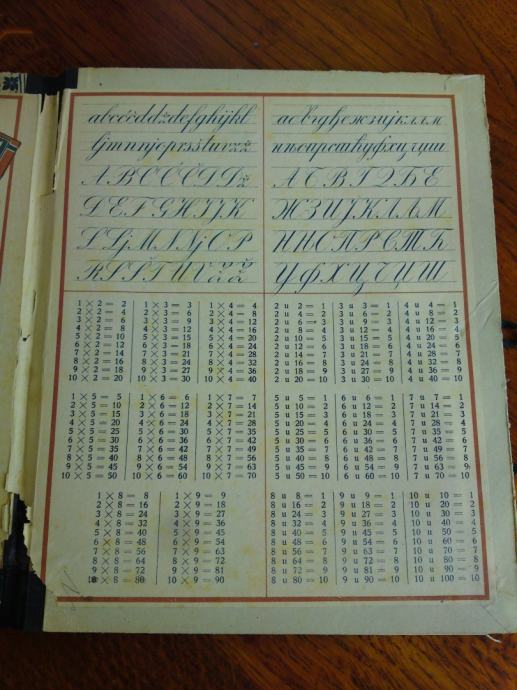 abcčćddžđefghijkl
ljmnnjoprsštuvzž
A B C Č Ć D Dž
Đ E F G H I J K
L Lj M N Nj O P
R S Š T U V Z Ž
абвгдђежзијклљм
нњопрстћуфхцчџш
А Б В Г Д Ђ Е
Ж З И Ј К Л Љ М
Н Њ О П Р С Т Ћ
У Ф Х Ц Ч Џ Ш
1 × 2 = 2 1 × 3 = 3 1 × 4 = 4
2 × 2 = 4 2 × 3 = 6 2 × 4 = 8
3 × 2 = 6 3 × 3 = 9 3 × 4 = 12
4 × 2 = 8 4 × 3 = 12 4 × 4 = 16
5 × 2 = 10 5 × 3 = 15 5 × 4 = 20
6 × 2 = 12 6 × 3 = 18 6 × 4 = 24
7 × 2 = 14 7 × 3 = 21 7 × 4 = 28
8 × 2 = 16 8 × 3 = 24 8 × 4 = 32
9 × 2 = 18 9 × 3 = 27 9 × 4 = 36
10 × 2 = 20 10 × 3 = 30 10 × 4 = 40
2 u 2 = 1 3 u 3 = 1 4 u 4 = 1
2 u 4 = 2 3 u 6 = 2 4 u 8 = 2
2 u 6 = 3 3 u 9 = 3 4 u 12 = 3
2 u 8 = 4 3 u 12 = 4 4 u 16 = 4
2 u 10 = 5 3 u 15 = 5 4 u 20 = 5
2 u 12 = 6 3 u 18 = 6 4 u 24 = 6
2 u 14 = 7 3 u 21 = 7 4 u 28 = 7
2 u 16 = 8 3 u 24 = 8 4 u 32 = 8
2 u 18 = 9 3 u 27 = 9 4 u 36 = 9
2 u 20 = 10 3 u 30 = 10 4 u 40 = 10
1 × 5 = 5 1 × 6 = 6 1 × 7 = 7
2 × 5 = 10 2 × 6 = 12 2 × 7 = 14
3 × 5 = 15 3 × 6 = 18 3 × 7 = 21
4 × 5 = 20 4 × 6 = 24 4 × 7 = 28
5 × 5 = 25 5 × 6 = 30 5 × 7 = 35
6 × 5 = 30 6 × 6 = 36 6 × 7 = 42
7 × 5 = 35 7 × 6 = 42 7 × 7 = 49
8 × 5 = 40 8 × 6 = 48 8 × 7 = 56
9 × 5 = 45 9 × 6 = 54 9 × 7 = 63
10 × 5 = 50 10 × 6 = 60 10 × 7 = 70
5 u 5 = 1 6 u 6 = 1 7 u 7 = 1
5 u 10 = 2 6 u 12 = 2 7 u 14 = 2
5 u 15 = 3 6 u 18 = 3 7 u 21 = 3
5 u 20 = 4 6 u 24 = 4 7 u 28 = 4
5 u 25 = 5 6 u 30 = 5 7 u 35 = 5
5 u 30 = 6 6 u 36 = 6 7 u 42 = 6
5 u 35 = 7 6 u 42 = 7 7 u 49 = 7
5 u 40 = 8 6 u 48 = 8 7 u 56 = 8
5 u 45 = 9 6 u 54 = 9 7 u 63 = 9
5 u 50 = 10 6 u 60 = 10 7 u 70 = 10
1 × 8 = 8 1 × 9 = 9
2 × 8 = 16 2 × 9 = 18
3 × 8 = 24 3 × 9 = 27
4 × 8 = 32 4 × 9 = 36
5 × 8 = 40 5 × 9 = 45
6 × 8 = 48 6 × 9 = 54
7 × 8 = 56 7 × 9 = 63
8 × 8 = 64 8 × 9 = 72
9 × 8 = 72 9 × 9 = 81
10 × 8 = 80 10 × 9 = 90
8 u 8 = 1 9 u 9 = 1 10 u 10 = 1
8 u 16 = 2 9 u 18 = 2 10 u 20 = 2
8 u 24 = 3 9 u 27 = 3 10 u 30 = 3
8 u 32 = 4 9 u 36 = 4 10 u 40 = 4
8 u 40 = 5 9 u 45 = 5 10 u 50 = 5
8 u 48 = 6 9 u 54 = 6 10 u 60 = 6
8 u 56 = 7 9 u 63 = 7 10 u 70 = 7
8 u 64 = 8 9 u 72 = 8 10 u 80 = 8
8 u 72 = 9 9 u 81 = 9 10 u 90 = 9
8 u 80 = 10 9 u 90 = 10 10 u 100 = 10